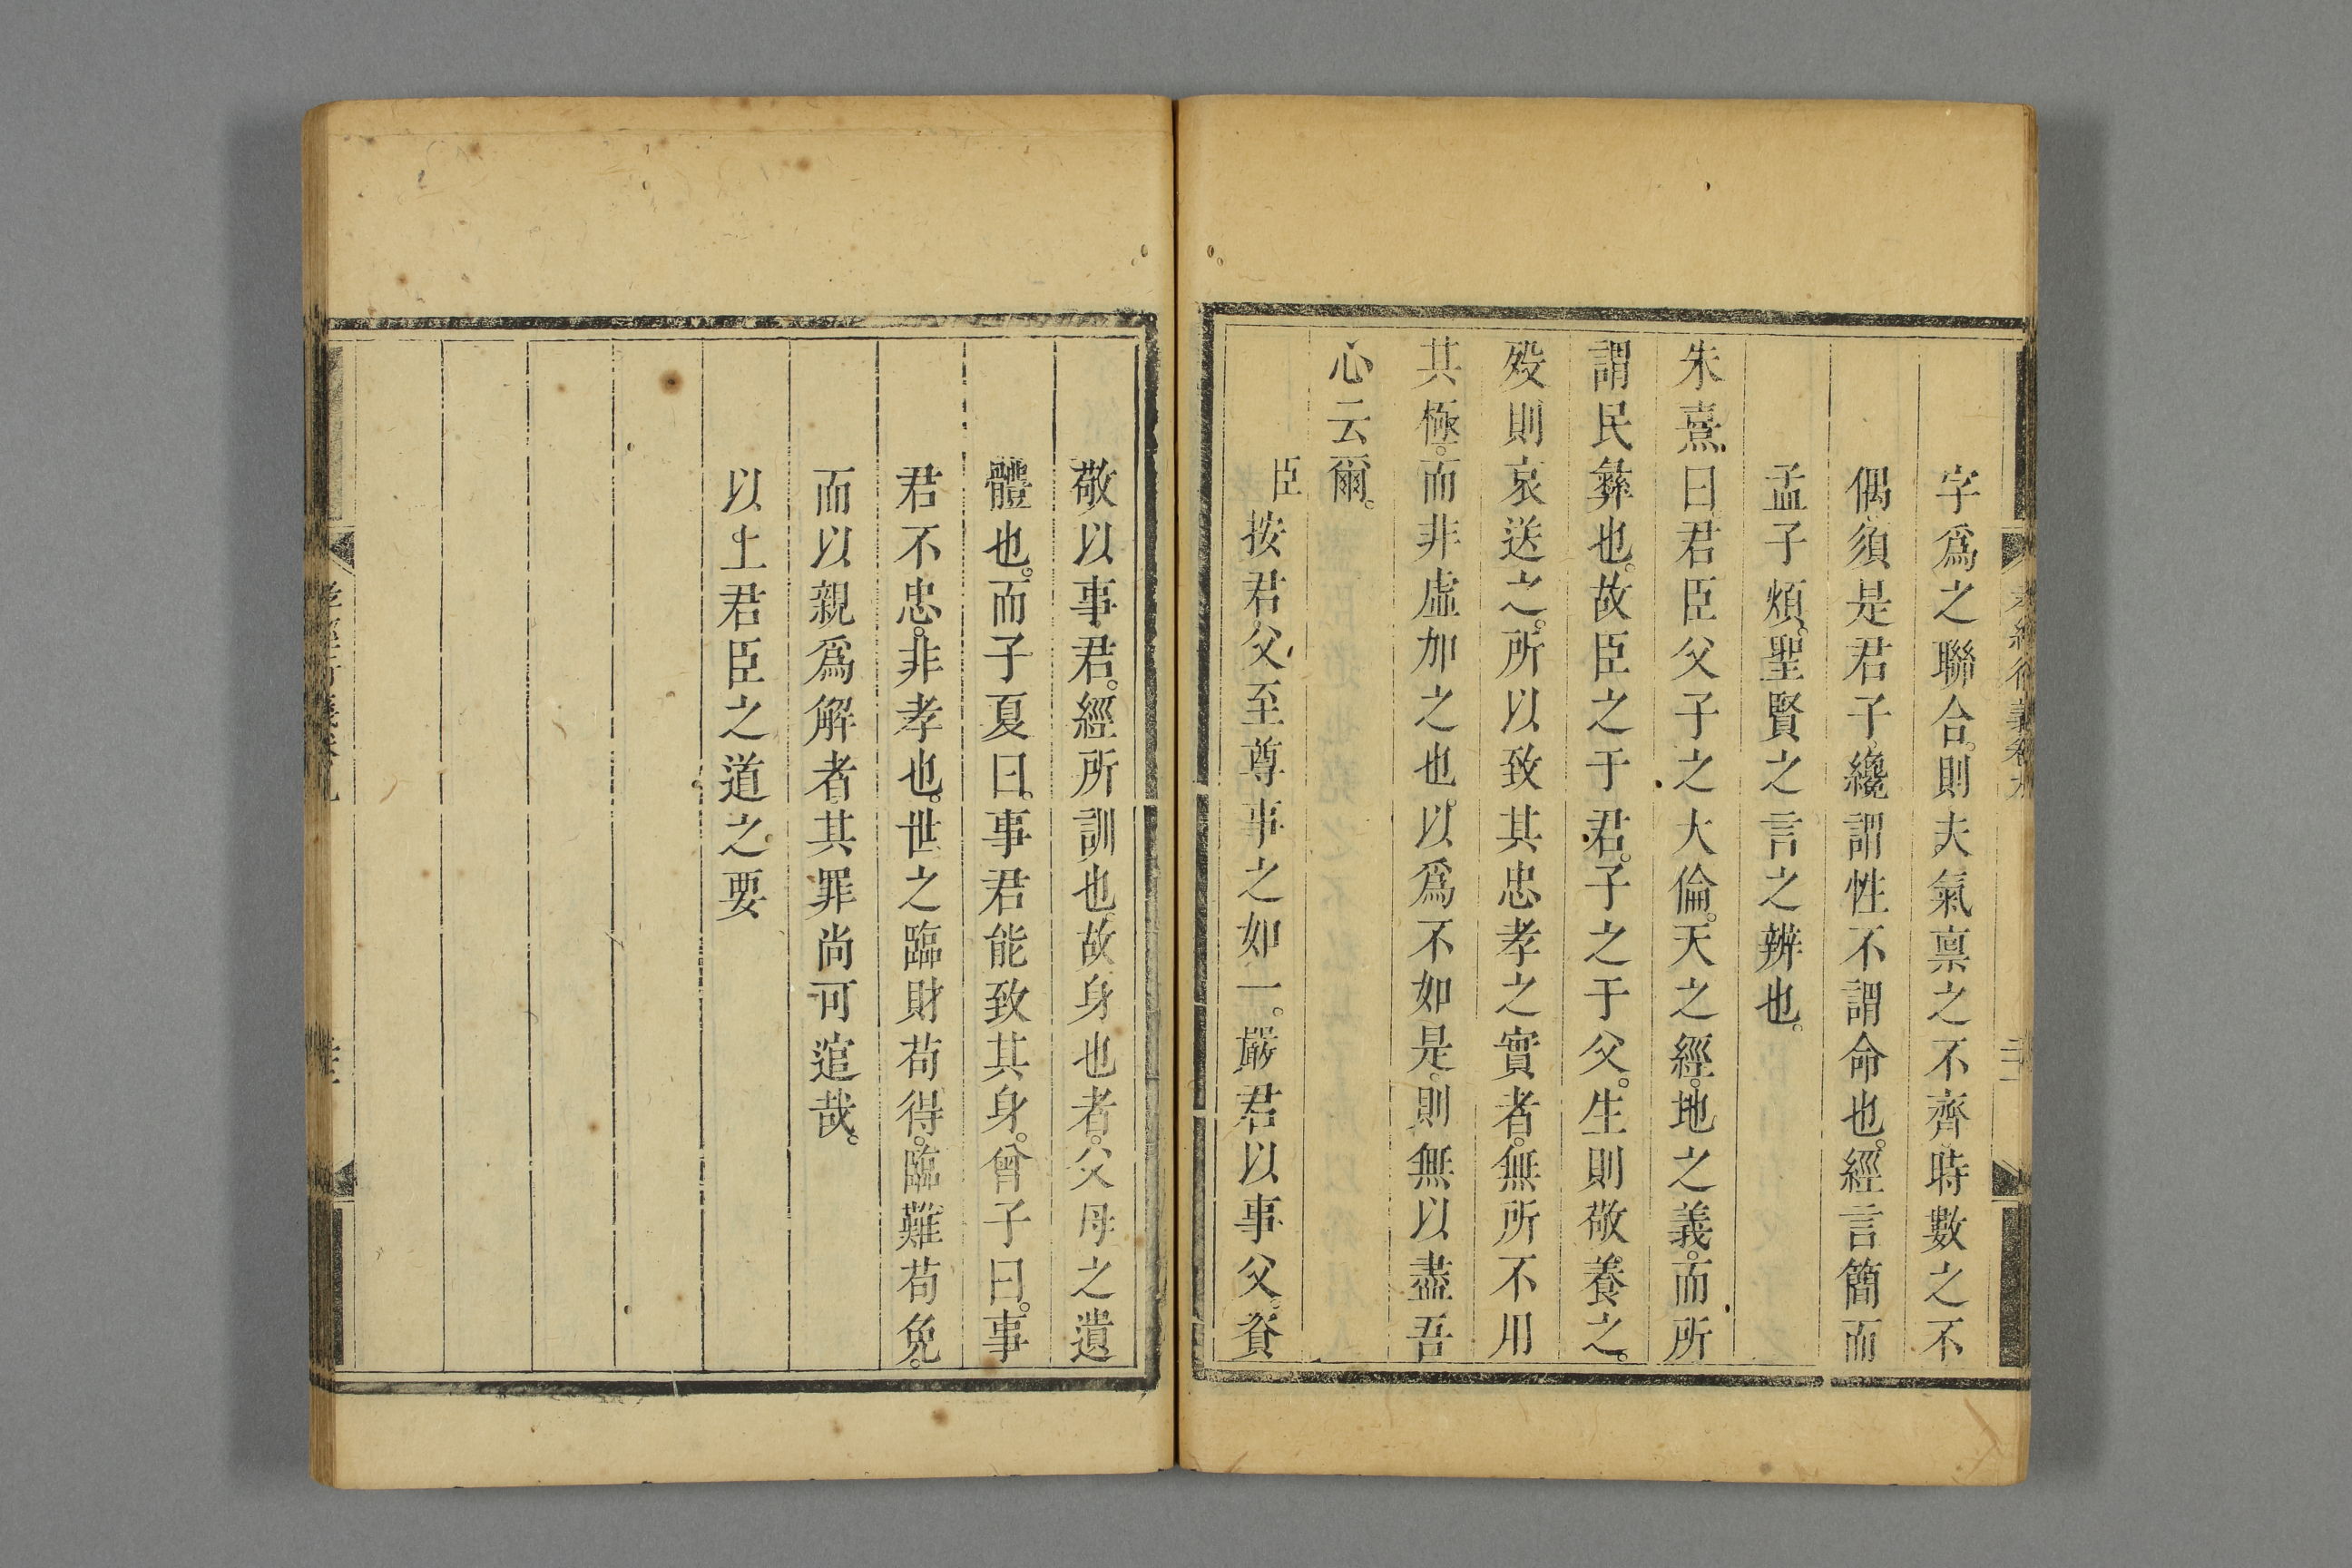 字爲之聯合。則夫氣禀之不齊時數之不
偶須是君子纔謂性不謂命也。經言簡而
孟子煩。聖賢之言之辨也。
朱熹曰君臣父子之大倫。天之經。地之義。而所
謂民彝也。故臣之于君。子之于父。生則敬養之。
歿則哀送之。所以致其忠孝之實者。無所不用
其極。而非虛加之也。以爲不如是。則無以盡吾
心云爾。
臣按君父至尊事之如一。嚴君以事父。資
敬以事君。經所訓也。故身也者。父母之遺
體也。而子夏曰。事君能致其身。曾子曰。事
君不忠。非孝也。世之臨財苟得。臨難苟免。
而以親爲解者。其罪尚可逭哉。
以上君臣之道之要